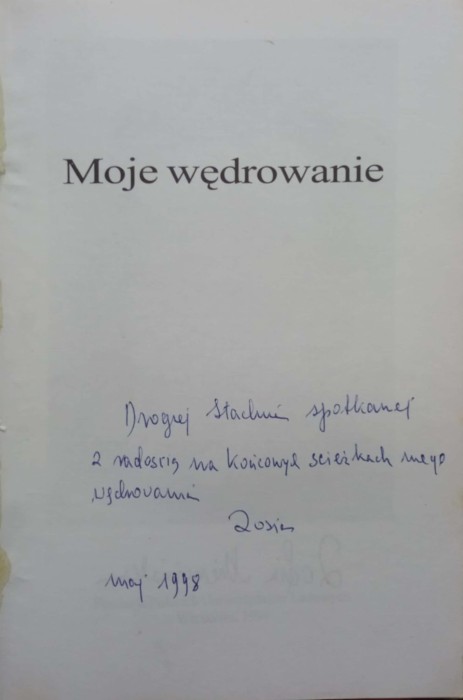 Moje wędrowanie
Drogiej Stachni spotkanej
z radością na końcowych ścieżkach mego
wędrowania
Zosia
maj 1998